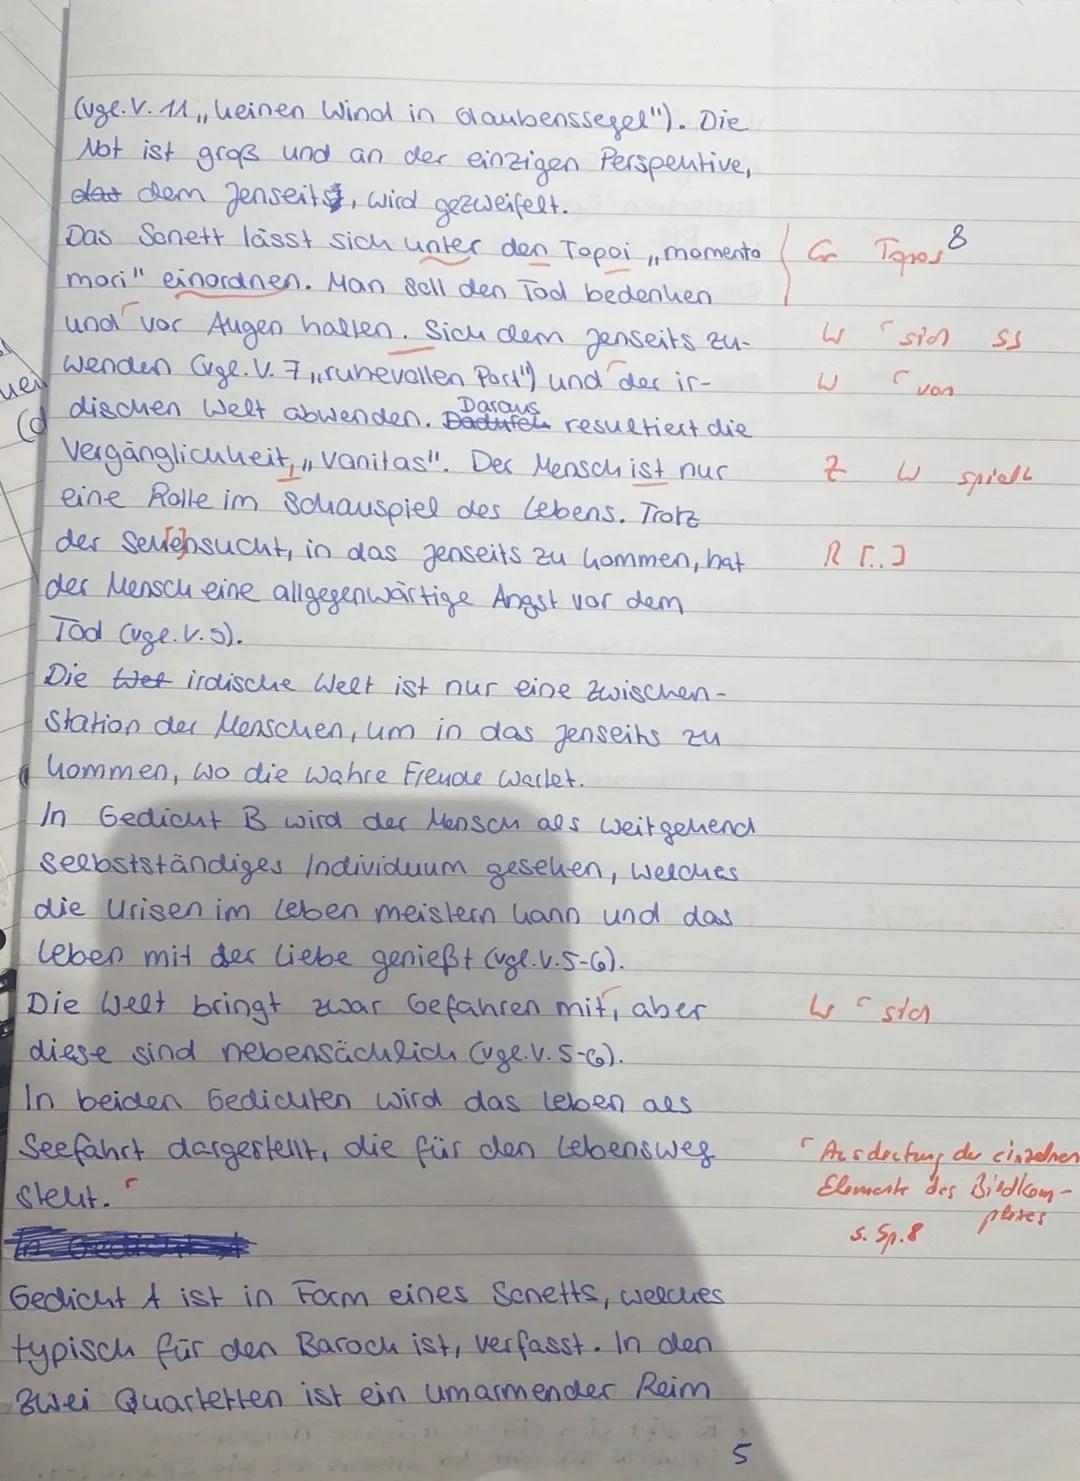 (vgl. V. 11 „keinen Wind in Glaubenssegel"). Die
Not ist groß und an der einzigen Perspektive,
dem Jenseits, wird gezweifelt.
Das Sonett lässt sich unter den Topoi „momento
Gr Topos 8
mori" einordnen. Man soll den Tod bedenken
und vor Augen halten. Sich dem Jenseits zu-
W sich ss
wenden (vgl. V. 7 „ruhevollen Port") und der ir-
W von
dischen Welt abwenden. Daraus resultiert die
Vergänglichkeit, „Vanitas". Der Mensch ist nur
Z W spielt
eine Rolle im Schauspiel des Lebens. Trotz
der Sehensucht, in das Jenseits zu kommen, hat
R [..]
der Mensch eine allgegenwärtige Angst vor dem
Tod (vgl. V. 5).
Die Wel irdische Welt ist nur eine Zwischen-
station der Menschen, um in das Jenseits zu
kommen, wo die wahre Freude wartet.
In Gedicht B wird der Mensch als weitgehend
selbstständiges Individuum gesehen, welches
die Krisen im Leben meistern kann und das
Leben mit der Liebe genießt (vgl. V. 5-6).
Die Welt bringt zwar Gefahren mit, aber
W sich
diese sind nebensächlich (vgl. V. 5-6).
In beiden Gedichten wird das Leben als
Seefahrt dargestellt, die für den Lebensweg
steht.
Ausdeutung der einzelnen
Elemente des Bildkom-
plexes
s. Sp. 8
Gedicht A ist in Form eines Sonetts, welches
typisch für den Barock ist, verfasst. In den
zwei Quartetten ist ein umarmender Reim
5